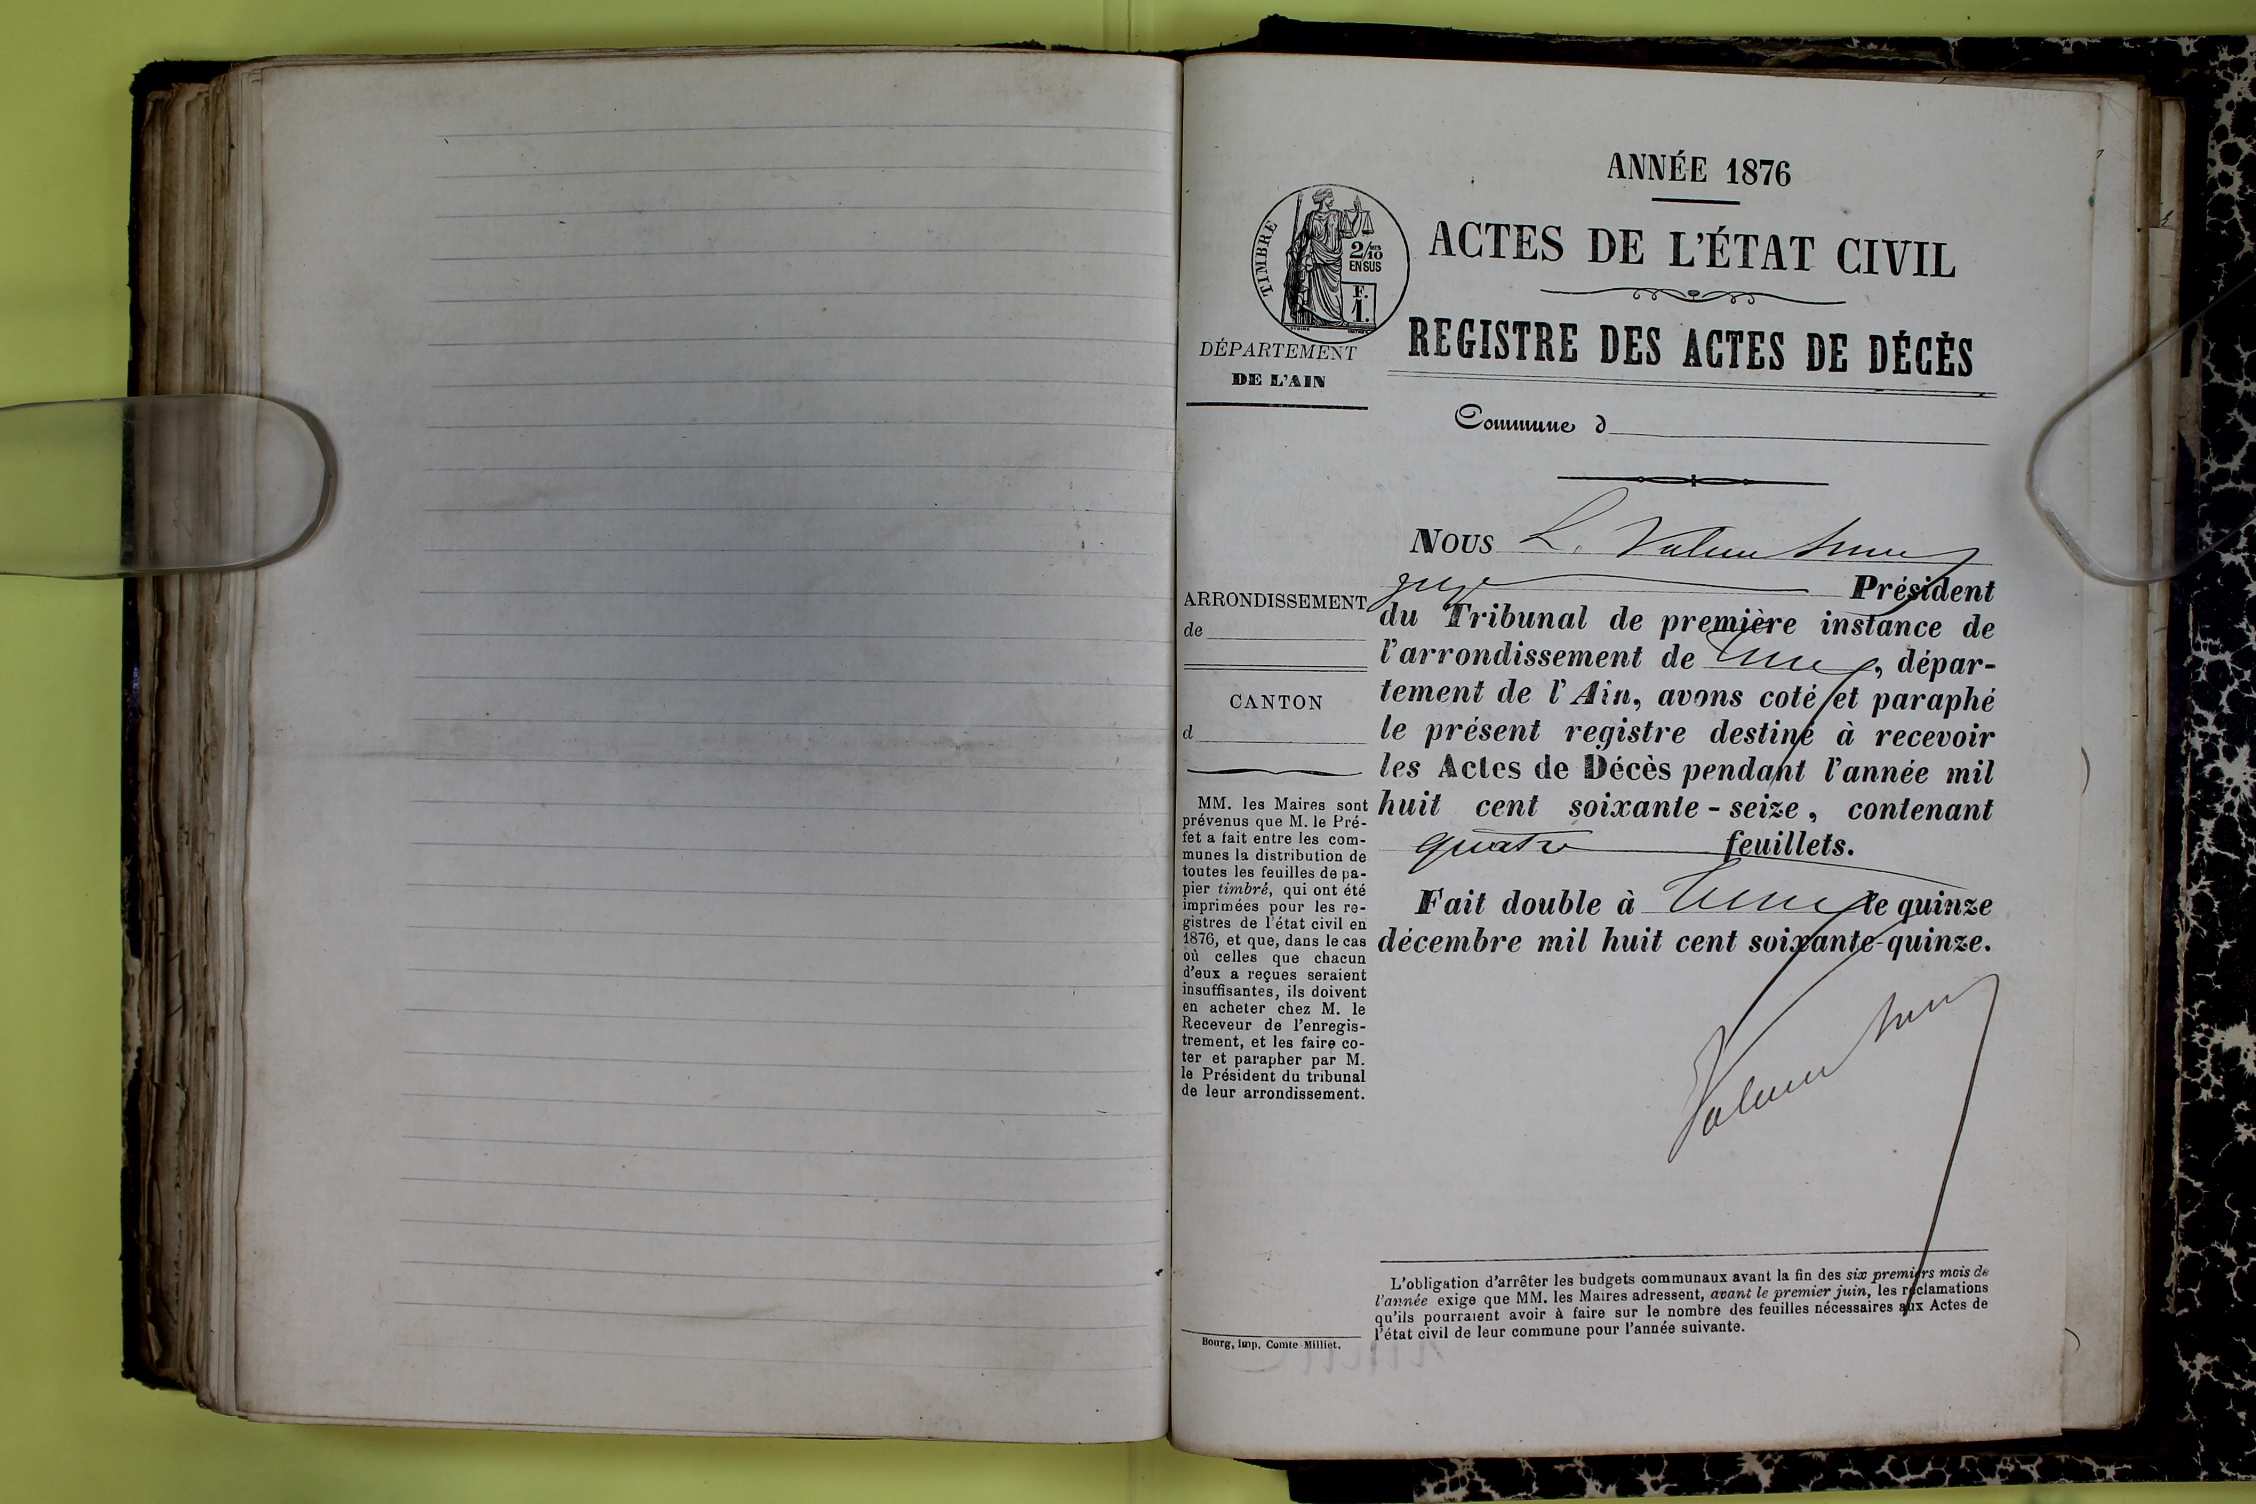 ANNÉE 1876
ACTES DE L'ÉTAT CIVIL
REGISTRE DES ACTES DE DÉCÈS
TIMBRE
2/10 EN SUS
F.
1.
DÉPARTEMENT
DE L'AIN
Commune d
ARRONDISSEMENT
de
CANTON
d
MM. les Maires sont
prévenus que M. le Pré-
fet a fait entre les com-
munes la distribution de
toutes les feuilles de pa-
pier timbré, qui ont été
imprimées pour les re-
gistres de l'état civil en
1876, et que, dans le cas
où celles que chacun
d'eux a reçues seraient
insuffisantes, ils doivent
en acheter chez M. le
Receveur de l'enregis-
trement, et les faire co-
ter et parapher par M.
le Président du tribunal
de leur arrondissement.
Bourg, imp. Comte-Milliet.
Nous L.
juge Président
du Tribunal de première instance de
l'arrondissement de , dépar-
tement de l'Ain, avons coté et paraphé
le présent registre destiné à recevoir
les Actes de Décès pendant l'année mil
huit cent soixante-seize, contenant
quatre feuillets.
Fait double à le quinze
décembre mil huit cent soixante-quinze.
L'obligation d'arrêter les budgets communaux avant la fin des six premiers mois de
l'année exige que MM. les Maires adressent, avant le premier juin, les réclamations
qu'ils pourraient avoir à faire sur le nombre des feuilles nécessaires aux Actes de
l'état civil de leur commune pour l'année suivante.